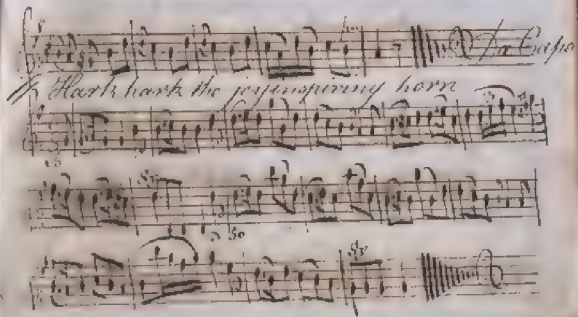 Da Capo
Hark hark the joy inspiring horn